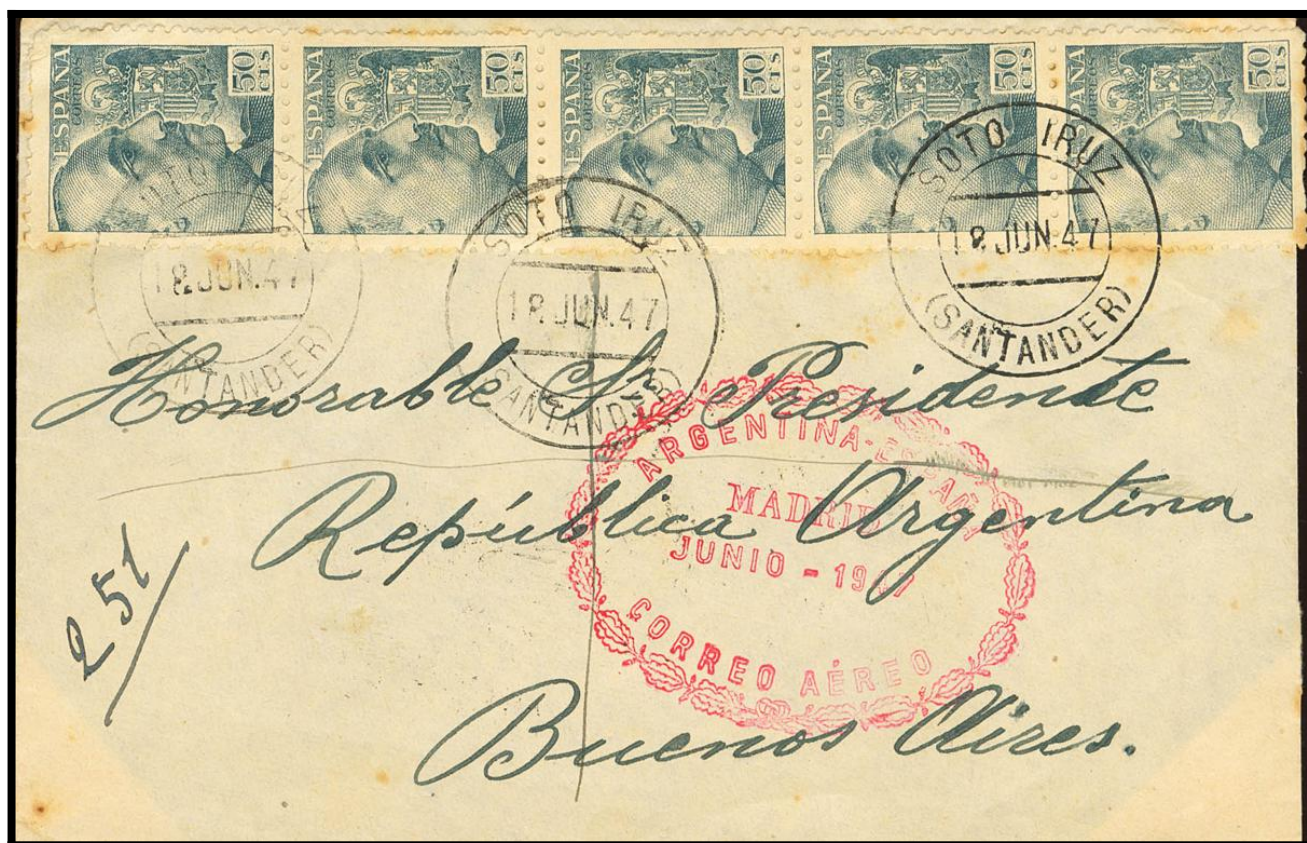 ESPAÑA CORREOS 50 CTS
ESPAÑA CORREOS 50 CTS
ESPAÑA CORREOS 50 CTS
ESPAÑA CORREOS 50 CTS
ESPAÑA CORREOS 50 CTS
SOTO IRUZ
18 JUN.47
(SANTANDER)
SOTO IRUZ
18 JUN.47
(SANTANDER)
SOTO IRUZ
18 JUN.47
(SANTANDER)
Honorable Sr. Presidente
República Argentina
Buenos Aires.
251/
ARGENTINA-ESPAÑA
MADRID
JUNIO - 1947
CORREO AÉREO